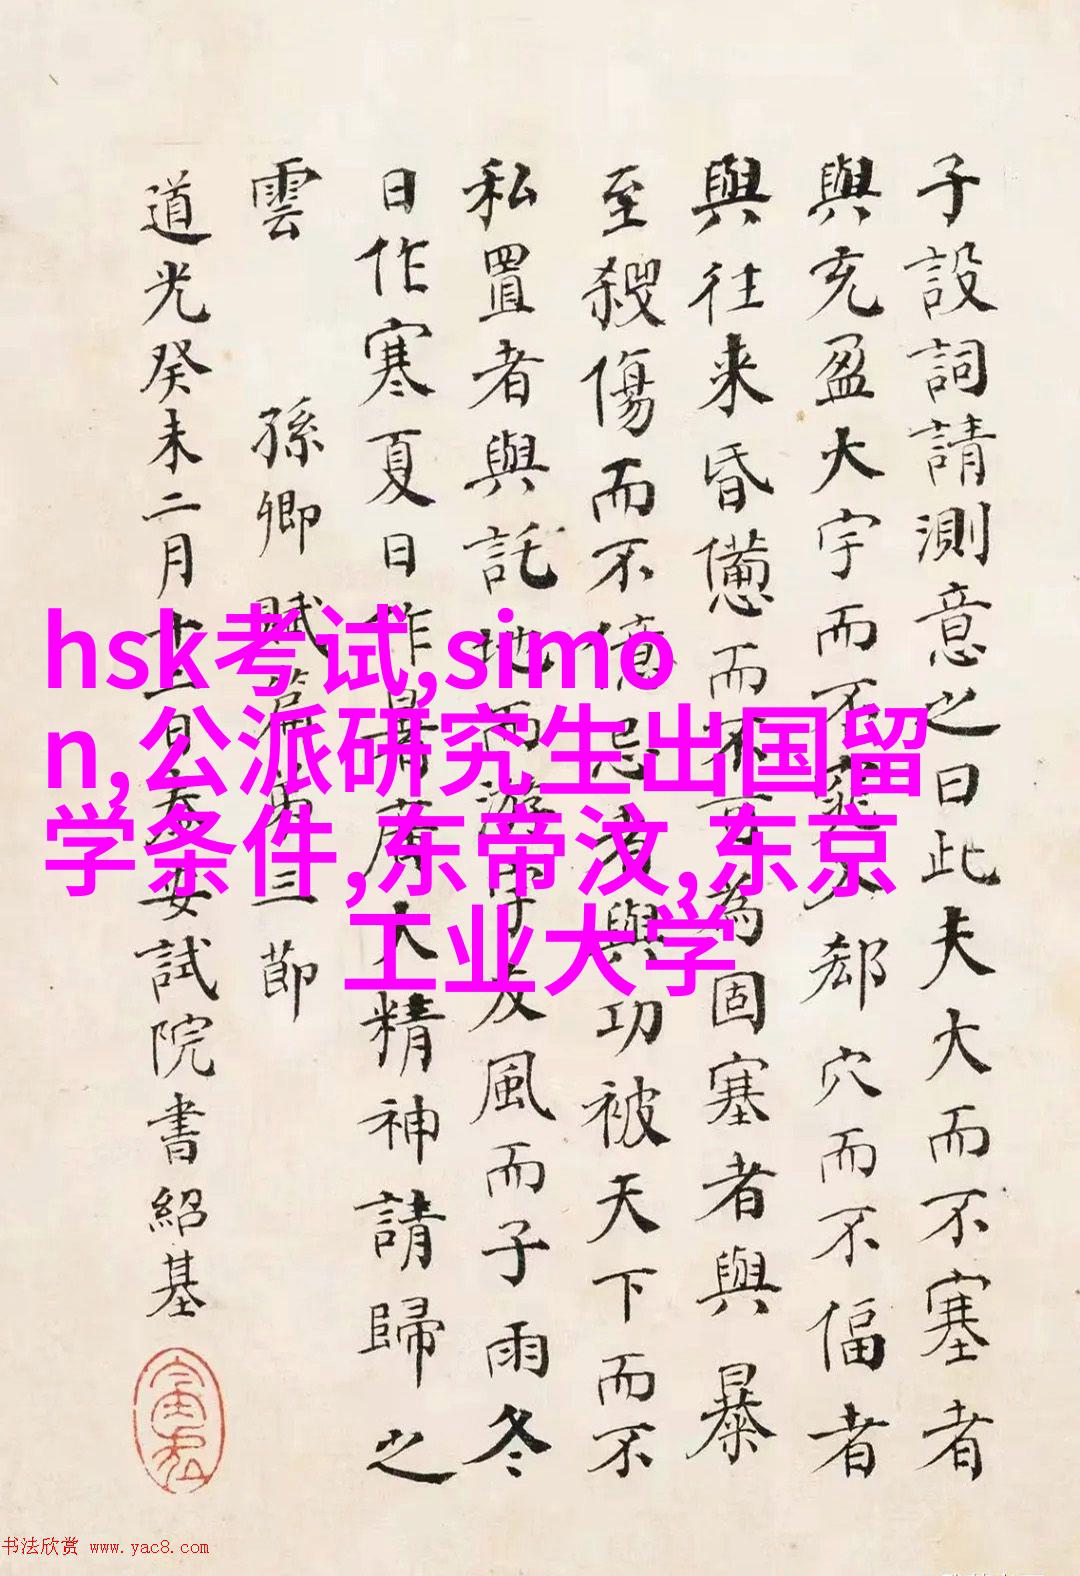 子設詞請測意之曰此夫大而不塞者
與充盈大宇而不窕入郄穴而不偪者
與往來昏憊而不可為固塞者與暴
至殺傷而不億忌者與功被天下而不
私置者與託地而游宇友風而子雨冬
日作寒夏日作暑廣大精神請歸之
雲 孫卿賦篇 三節
道光癸未二月十二日泰安試院書紹基
hsk考试,simo
n,公派研究生出国留
学条件,东帝汶,东京
工业大学
书法欣赏 www.yac8.com